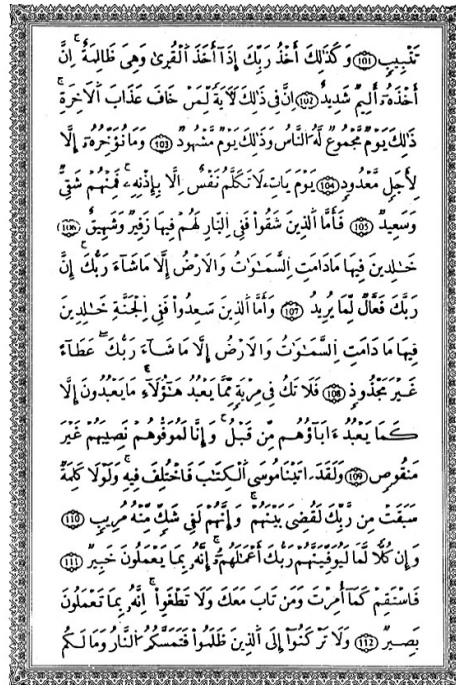 تَتْبِيبٍ 101 وَكَذَٰلِكَ أَخْذُ رَبِّكَ إِذَآ أَخَذَ اَ۬لْقُرَىٰ وَهِيَ ظَٰلِمَةٌ إِنَّ
أَخْذَهُۥٓ أَلِيمٌ شَدِيدٌ 102 اِنَّ فِي ذَٰلِكَ لَأٓيَةً لِّمَنْ خَافَ عَذَابَ اَ۬لْأٓخِرَةِ
ذَٰلِكَ يَوْمٌ مَّجْمُوعٌ لَّهُ اُ۬لنَّاسُ وَذَٰلِكَ يَوْمٌ مَّشْهُودٌ 103 وَمَا نُؤَخِّرُهُۥٓ إِلَّا
لِأَجَلٍ مَّعْدُودٍ 104 يَوْمَ يَاتِ لَا تَكَلَّمُ نَفْسٌ اِلَّا بِإِذْنِهِۦ فَمِنْهُمْ شَقِيٌّ
وَسَعِيدٌ 105 فَأَمَّا اَ۬لذِينَ شَقُوا۟ فَفِي اِ۬لنَّارِ لَهُمْ فِيهَا زَفِيرٌ وَشَهِيقٌ 106
خَٰلِدِينَ فِيهَا مَا دَامَتِ اِ۬لسَّمَٰوَٰتُ وَالْأَرْضُ إِلَّا مَا شَآءَ رَبُّكَ إِنَّ
رَبَّكَ فَعَّالٌ لِّمَا يُرِيدُ 107 وَأَمَّا اَ۬لذِينَ سَعِدُوا۟ فَفِي اِ۬لْجَنَّةِ خَٰلِدِينَ
فِيهَا مَا دَامَتِ اِ۬لسَّمَٰوَٰتُ وَالْأَرْضُ إِلَّا مَا شَآءَ رَبُّكَ عَطَآءً
غَيْرَ مَجْذُوذٍ 108 فَلَا تَكُ فِي مِرْيَةٍ مِّمَّا يَعْبُدُ هَٰٓؤُلَآءِ مَا يَعْبُدُونَ إِلَّا
كَمَا يَعْبُدُ ءَابَآؤُهُم مِّن قَبْلُ وَإِنَّا لَمُوَفُّوهُمْ نَصِيبَهُمْ غَيْرَ
مَنقُوصٍ 109 وَلَقَدَ اتَيْنَا مُوسَى اَ۬لْكِتَٰبَ فَاخْتُلِفَ فِيهِ وَلَوْلَا كَلِمَةٌ
سَبَقَتْ مِن رَّبِّكَ لَقُضِيَ بَيْنَهُمْ وَإِنَّهُمْ لَفِي شَكٍّ مِّنْهُ مُرِيبٍ 110
وَإِن كُلًّا لَّمَا لَيُوَفِّيَنَّهُمْ رَبُّكَ أَعْمَٰلَهُمُۥٓ إِنَّهُۥ بِمَا يَعْمَلُونَ خَبِيرٌ 111
فَاسْتَقِمْ كَمَآ أُمِرْتَ وَمَن تَابَ مَعَكَ وَلَا تَطْغَوِا۟ اِنَّهُۥ بِمَا تَعْمَلُونَ
بَصِيرٌ 112 وَلَا تَرْكَنُوٓا۟ إِلَى اَ۬لذِينَ ظَلَمُوا۟ فَتَمَسَّكُمُ اُ۬لنَّارُ وَمَا لَكُم